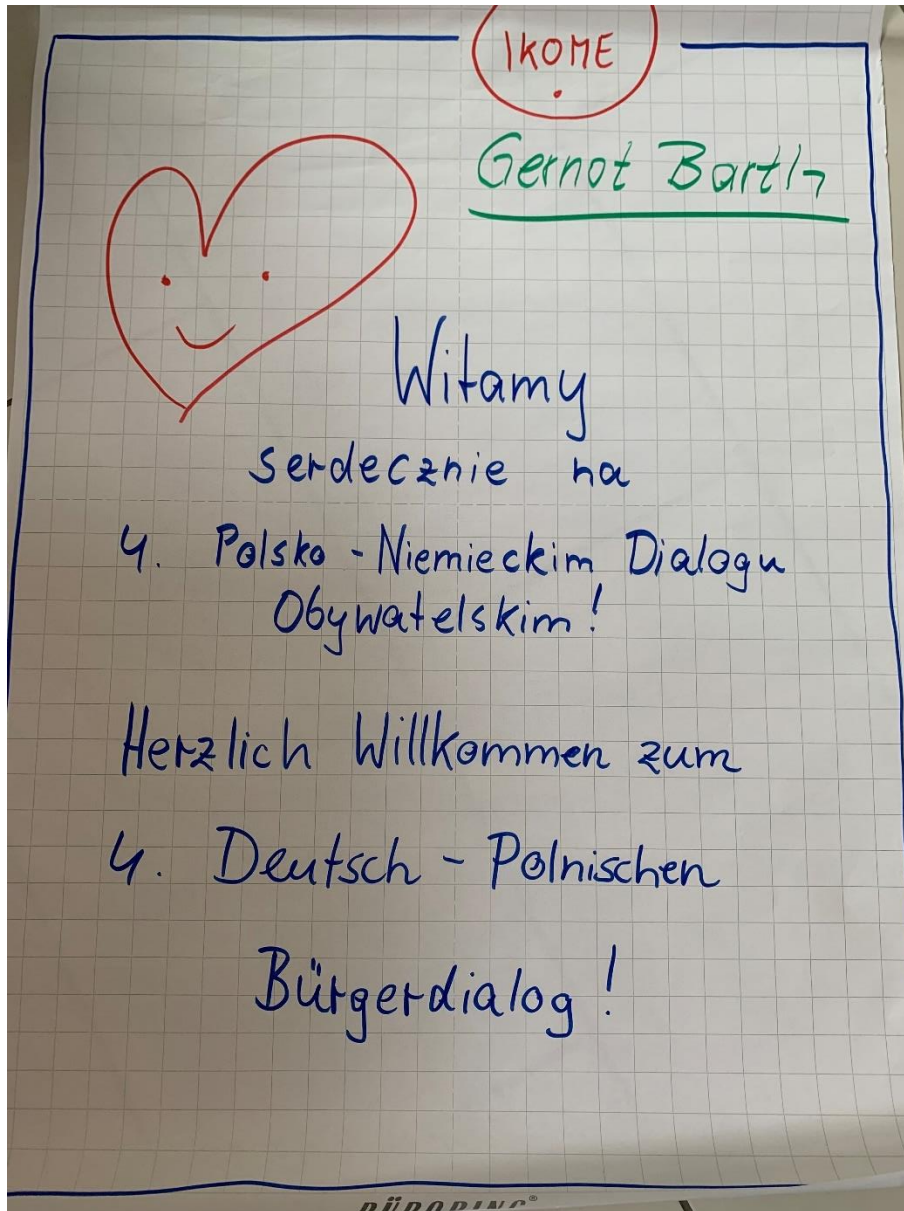 IKOME
Gernot Barth
Witamy
serdecznie na
4. Polsko - Niemieckim Dialogu
Obywatelskim!
Herzlich Willkommen zum
4. Deutsch - Polnischen
Bürgerdialog!